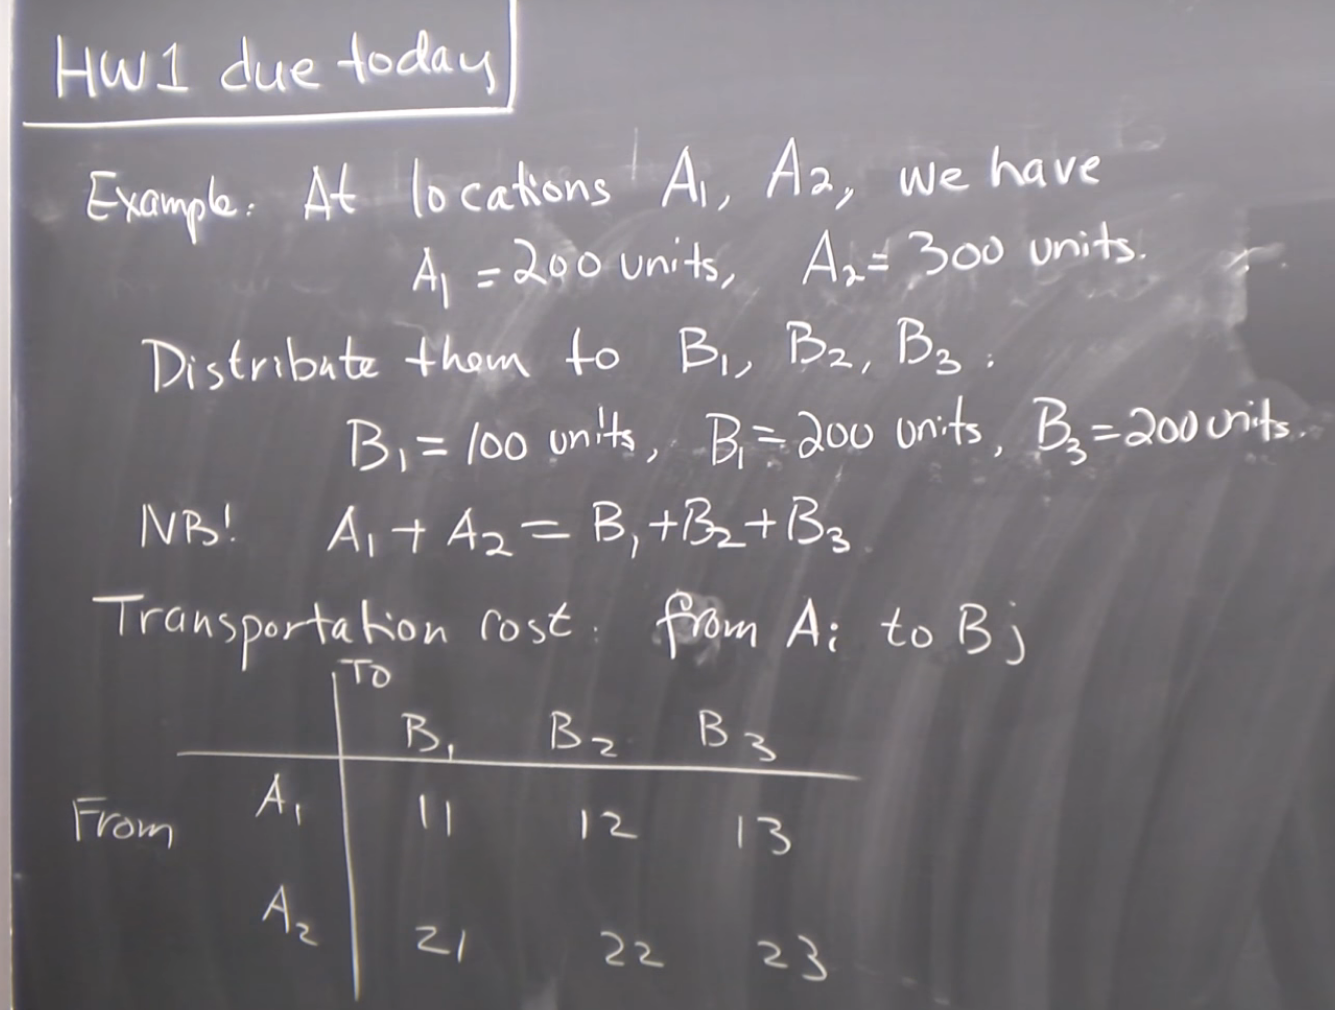 HW1 due today
Example: At locations A₁, A₂, we have
A₁ = 200 units, A₂ = 300 units.
Distribute them to B₁, B₂, B₃.
B₁ = 100 units, B₁ = 200 units, B₃ = 200 units.
NB! A₁ + A₂ = B₁ + B₂ + B₃
Transportation cost: from Ai to Bj
TO
B₁ B₂ B₃
From A₁ 11 12 13
A₂ 21 22 23